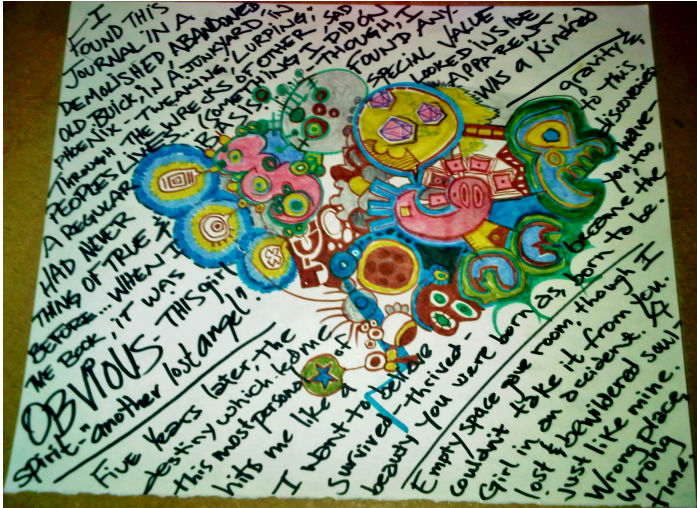 I
FOUND THIS
JOURNAL IN A
DEMOLISHED, ABANDONED
OLD BUICK, IN A JUNKYARD, IN
PHOENIX - TWEAKING, LURPING;
THROUGH THE WRECKS OF OTHER, SAD
PEOPLES LIVES... (SOMETHING I DID ON
A REGULAR BASIS) - THOUGH, I
HAD NEVER FOUND ANY-
THING OF TRUE & SPECIAL VALUE
BEFORE... WHEN I LOOKED INSIDE
THE BOOK, IT WAS APPARENT,
OBVIOUS - THIS girl WAS A Kindred
spirit - "another lost angel".
Five years later, the gravity &
destiny which led me to this
this most personal of discoveries,
hits me like a wave-
I want to believe you, too,
survived - thrived - become the
beauty you were born as, born to be.
Empty space gave room, though I
couldn't take it from you.
Girl in an accident. A
lost & bewildered soul-
just like mine.
Wrong place,
Wrong
time.